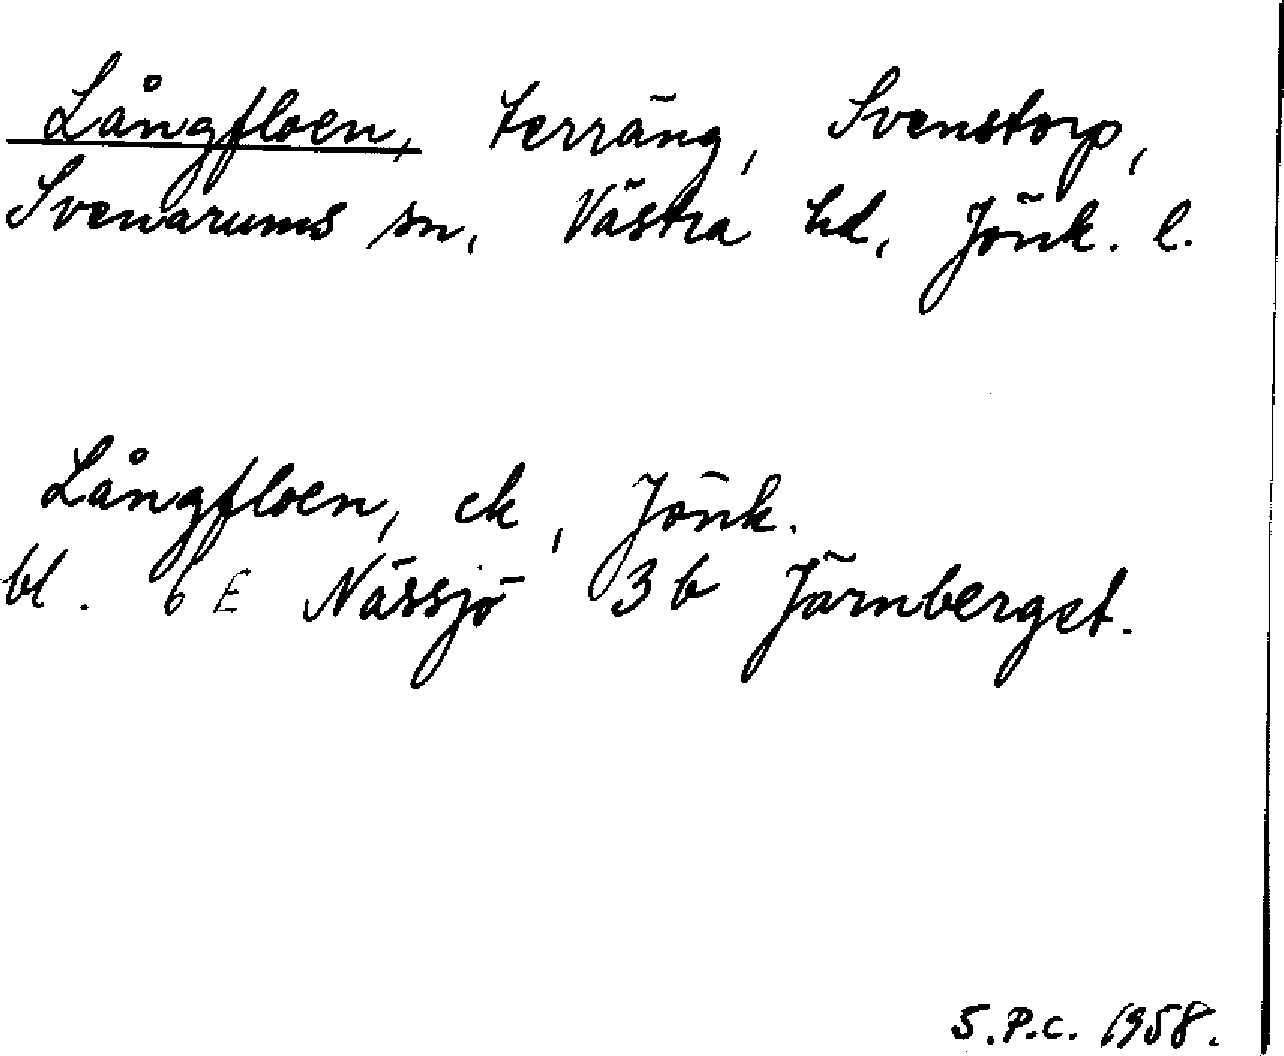 Långfloen, terräng, Svenstorp,
Svenarums sn, Västra hd, Jönk. l.
Långfloen, ek, Jönk.
bl. 6 E Nässjö 3 b Järnberget.
S.P.C. 1958.